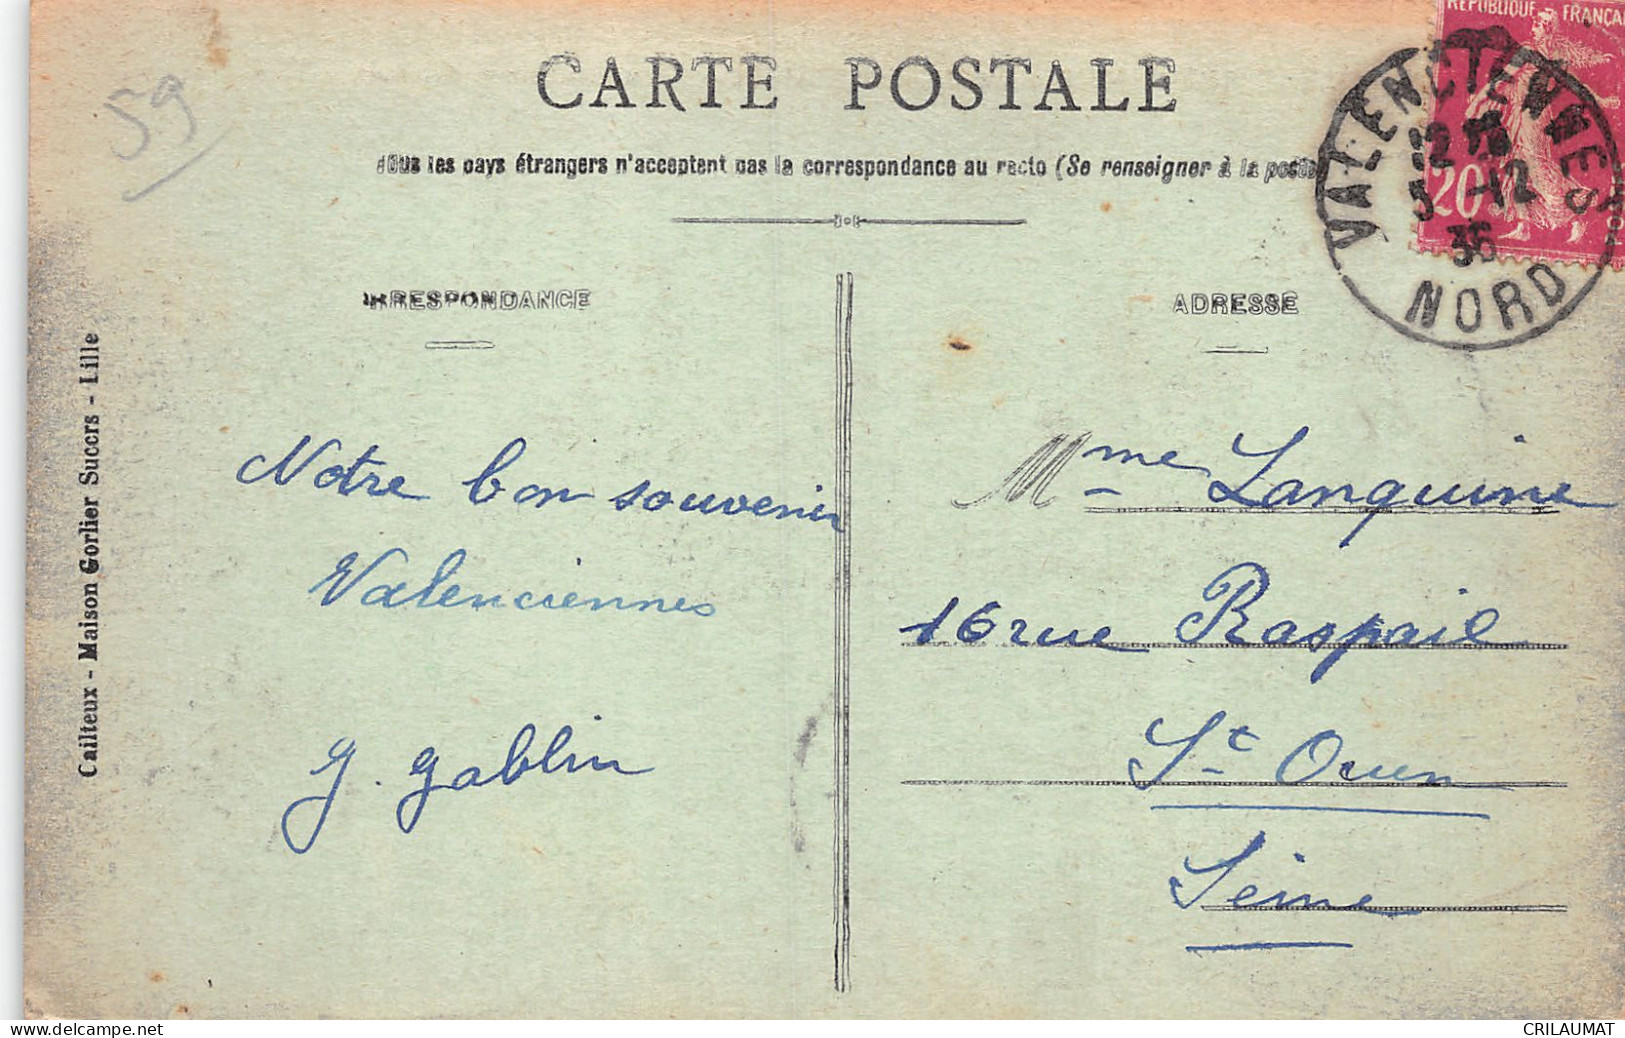 59
CARTE POSTALE
Tous les pays étrangers n'acceptent pas la correspondance au recto (Se renseigner à la poste
RÉPUBLIQUE FRANÇAI
20
VALENCIENNES
12
5 -12
36
NORD
RRESPONDANCE
ADRESSE
Cailteux - Maison Gorlier Succrs - Lille
Notre bon souvenir
Valenciennes
G. Gablin
Mme Lanquine
16 rue Raspail
St Ouen
Seine
www.delcampe.net
CRILAUMAT